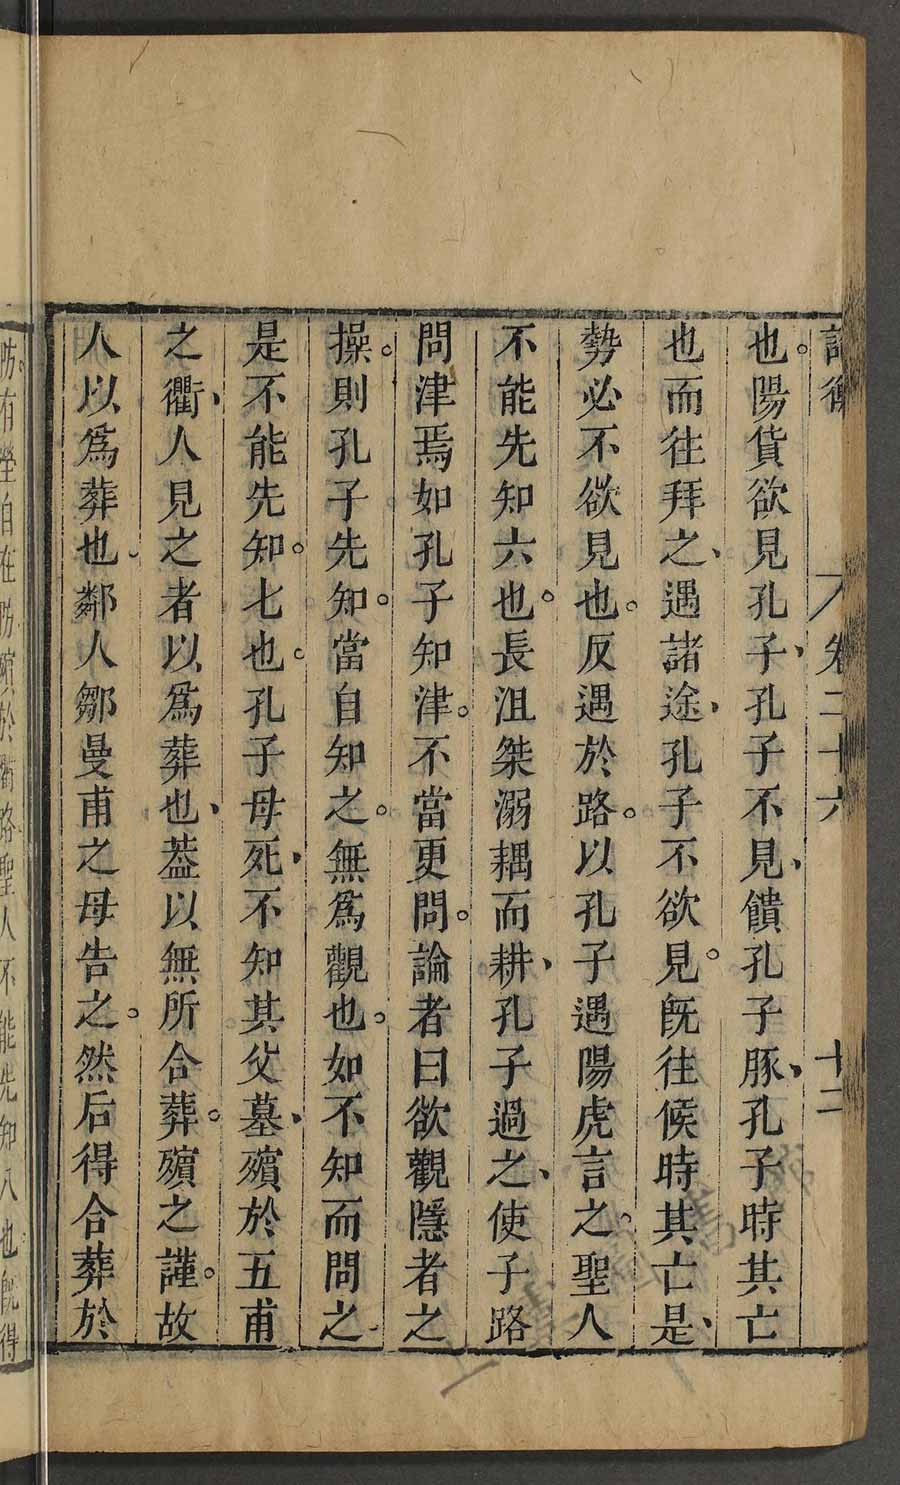 論衡 卷二十六 十二
也。陽貨欲見孔子、孔子不見、饋孔子豚、孔子時其亡
也而往拜之、遇諸途、孔子不欲見。旣往候時其亡是、
勢必不欲見也。反遇於路。以孔子遇陽虎言之。聖人
不能先知六也。長沮桀溺耦而耕、孔子過之、使子路
問津焉如孔子知津。不當更問。論者曰欲觀隱者之
操。則孔子先知。當自知之。無爲觀也。如不知而問之
是不能先知。七也。孔子母死、不知其父墓、殯於五甫
之衢、人見之者以爲葬也、葢以無所合葬。殯之謹。故
人以爲葬也、鄰人鄒曼甫之母告之。然后得合葬於
防。有塋自在防。殯於衢路聖人不能先知八也旣得